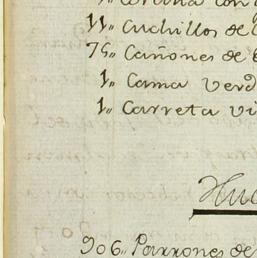 1„ Cortina con
11„ Cuchillos de
76„ Cañones de
1„ Cama verd
1„ Carreta vi
Hue
906„ Parrones de